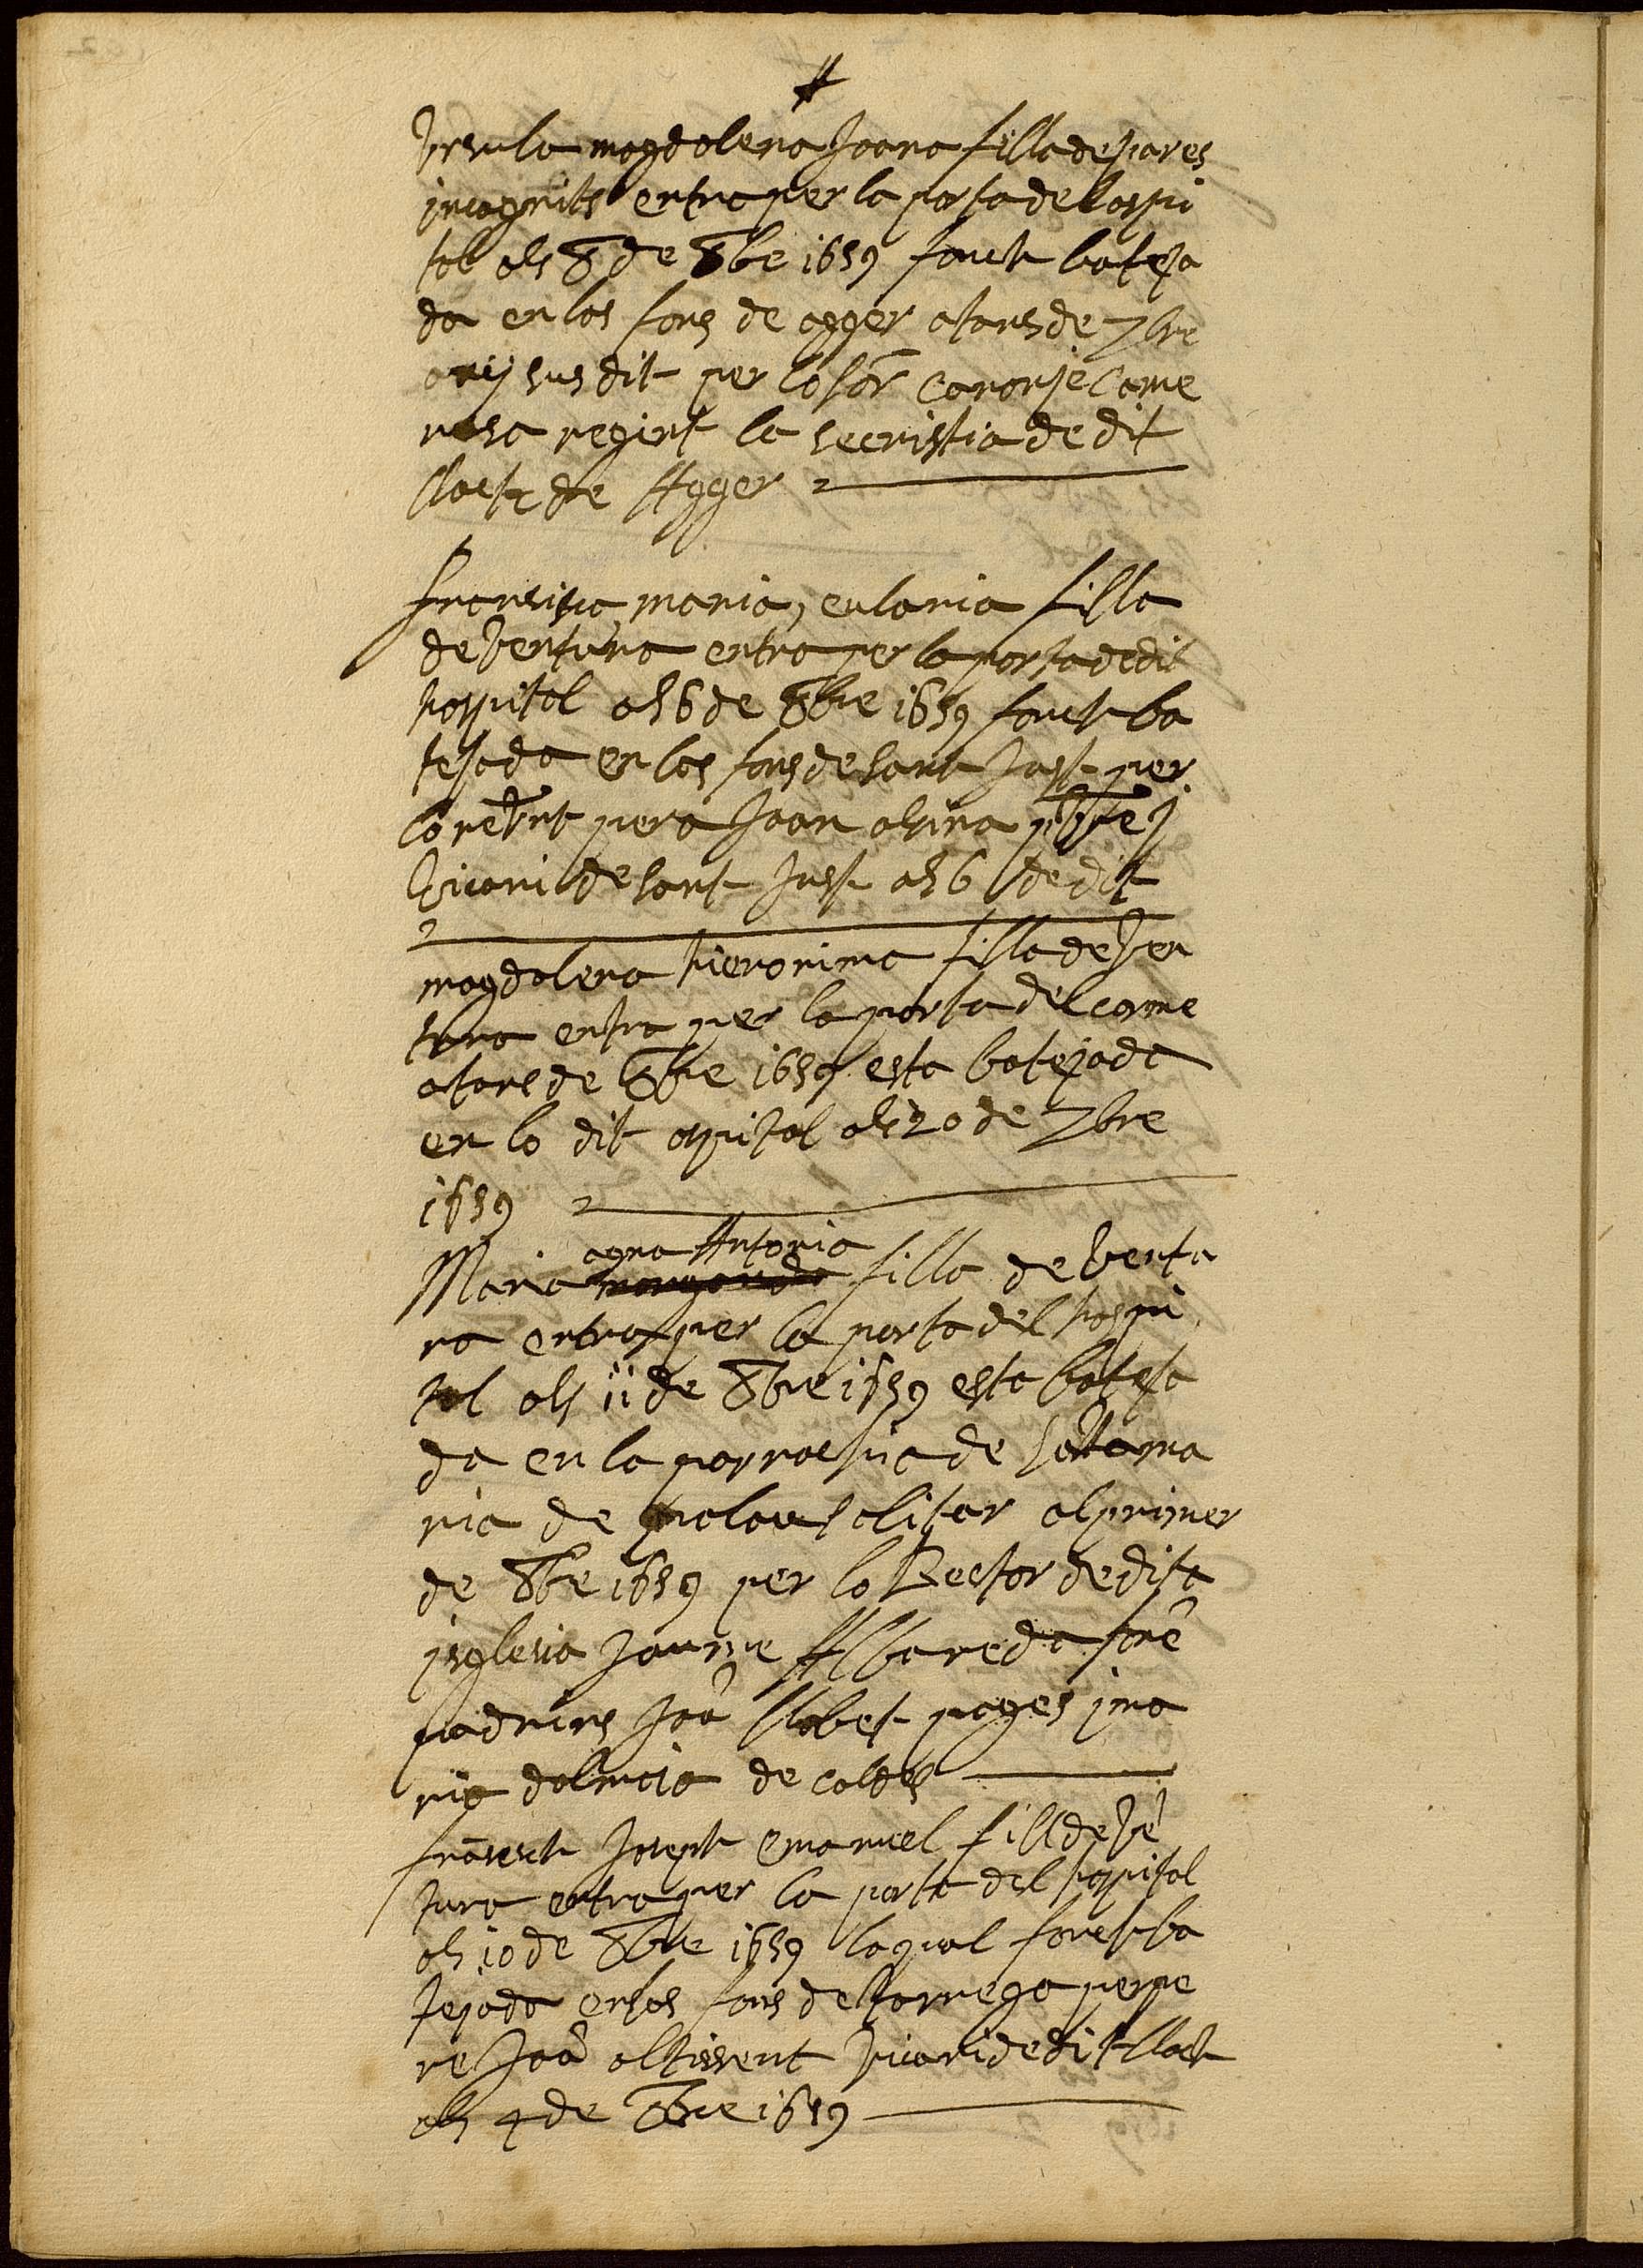 Vrsula magdalena Joana filla de pares
incognits entra per la porta del ospi
tal als 8 de 8bre 1659 fonch bateja
da en las fons de agger a tans de 7bre
any sus dit per lo sor Canonje Come
rasa regint la secristia de dit
lloch de Agger
Fransisca, maria, eularia filla
de Ventura entra per la porta de dit
hospital als 6 de 8bre 1659 fonch ba
tejada en las fons de sant Just per
lo revnt pera Joan alsina pbre y
Vicari de sant Just als 6 de dit
magdalena hieronima filla de Ven
tura entra per la porta del carme
a tans de 8bre 1659 esta batejada
en lo dit ospital als 20 de 7bre
1659
agna Antonia
Maria filla de Ventu
ra entra per la porta del hospi
tal als 11 de 8bre 1659 esta bateja
da en la parrochia de Sta ma
ria de palau solitar al primer
de 8bre 1659 per lo Rector de dita
isglesia Jaume Albareda foré
padrins Joã llobet pages y ma
ria de caldes
franсesch Joseph emanuel fill de Vẽ
tura entra per la porta del hospital
als 10 de 8bre 1659 la qual fonch ba
tejada en las fons de tarrega per pe
re Joã altissent Vicari de dit lloch
als 4 de 8bre 1659